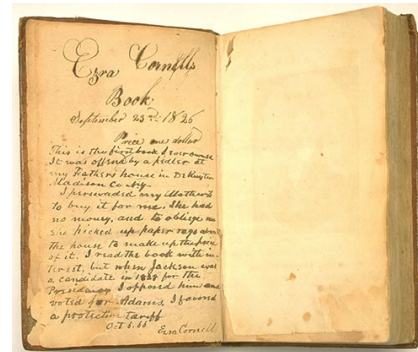 Ezra Cornells
Book
September 23rd 1825
Price one dollar
This is the first book I ever owned
It was offered by a pedler at
my Fathers house in DeRuyter
Madison County.
I perswaded my Mother
to buy it for me. She had
no money, and to oblige me
she picked up paper rags about
the house to make up the price
of it. I read the book with in-
terest, but when Jackson was
a candidate in 1828 for the
Presidency I opposed him and
voted for Adams. I favored
a protective tariff
Oct 5. 66
Ezra Cornell